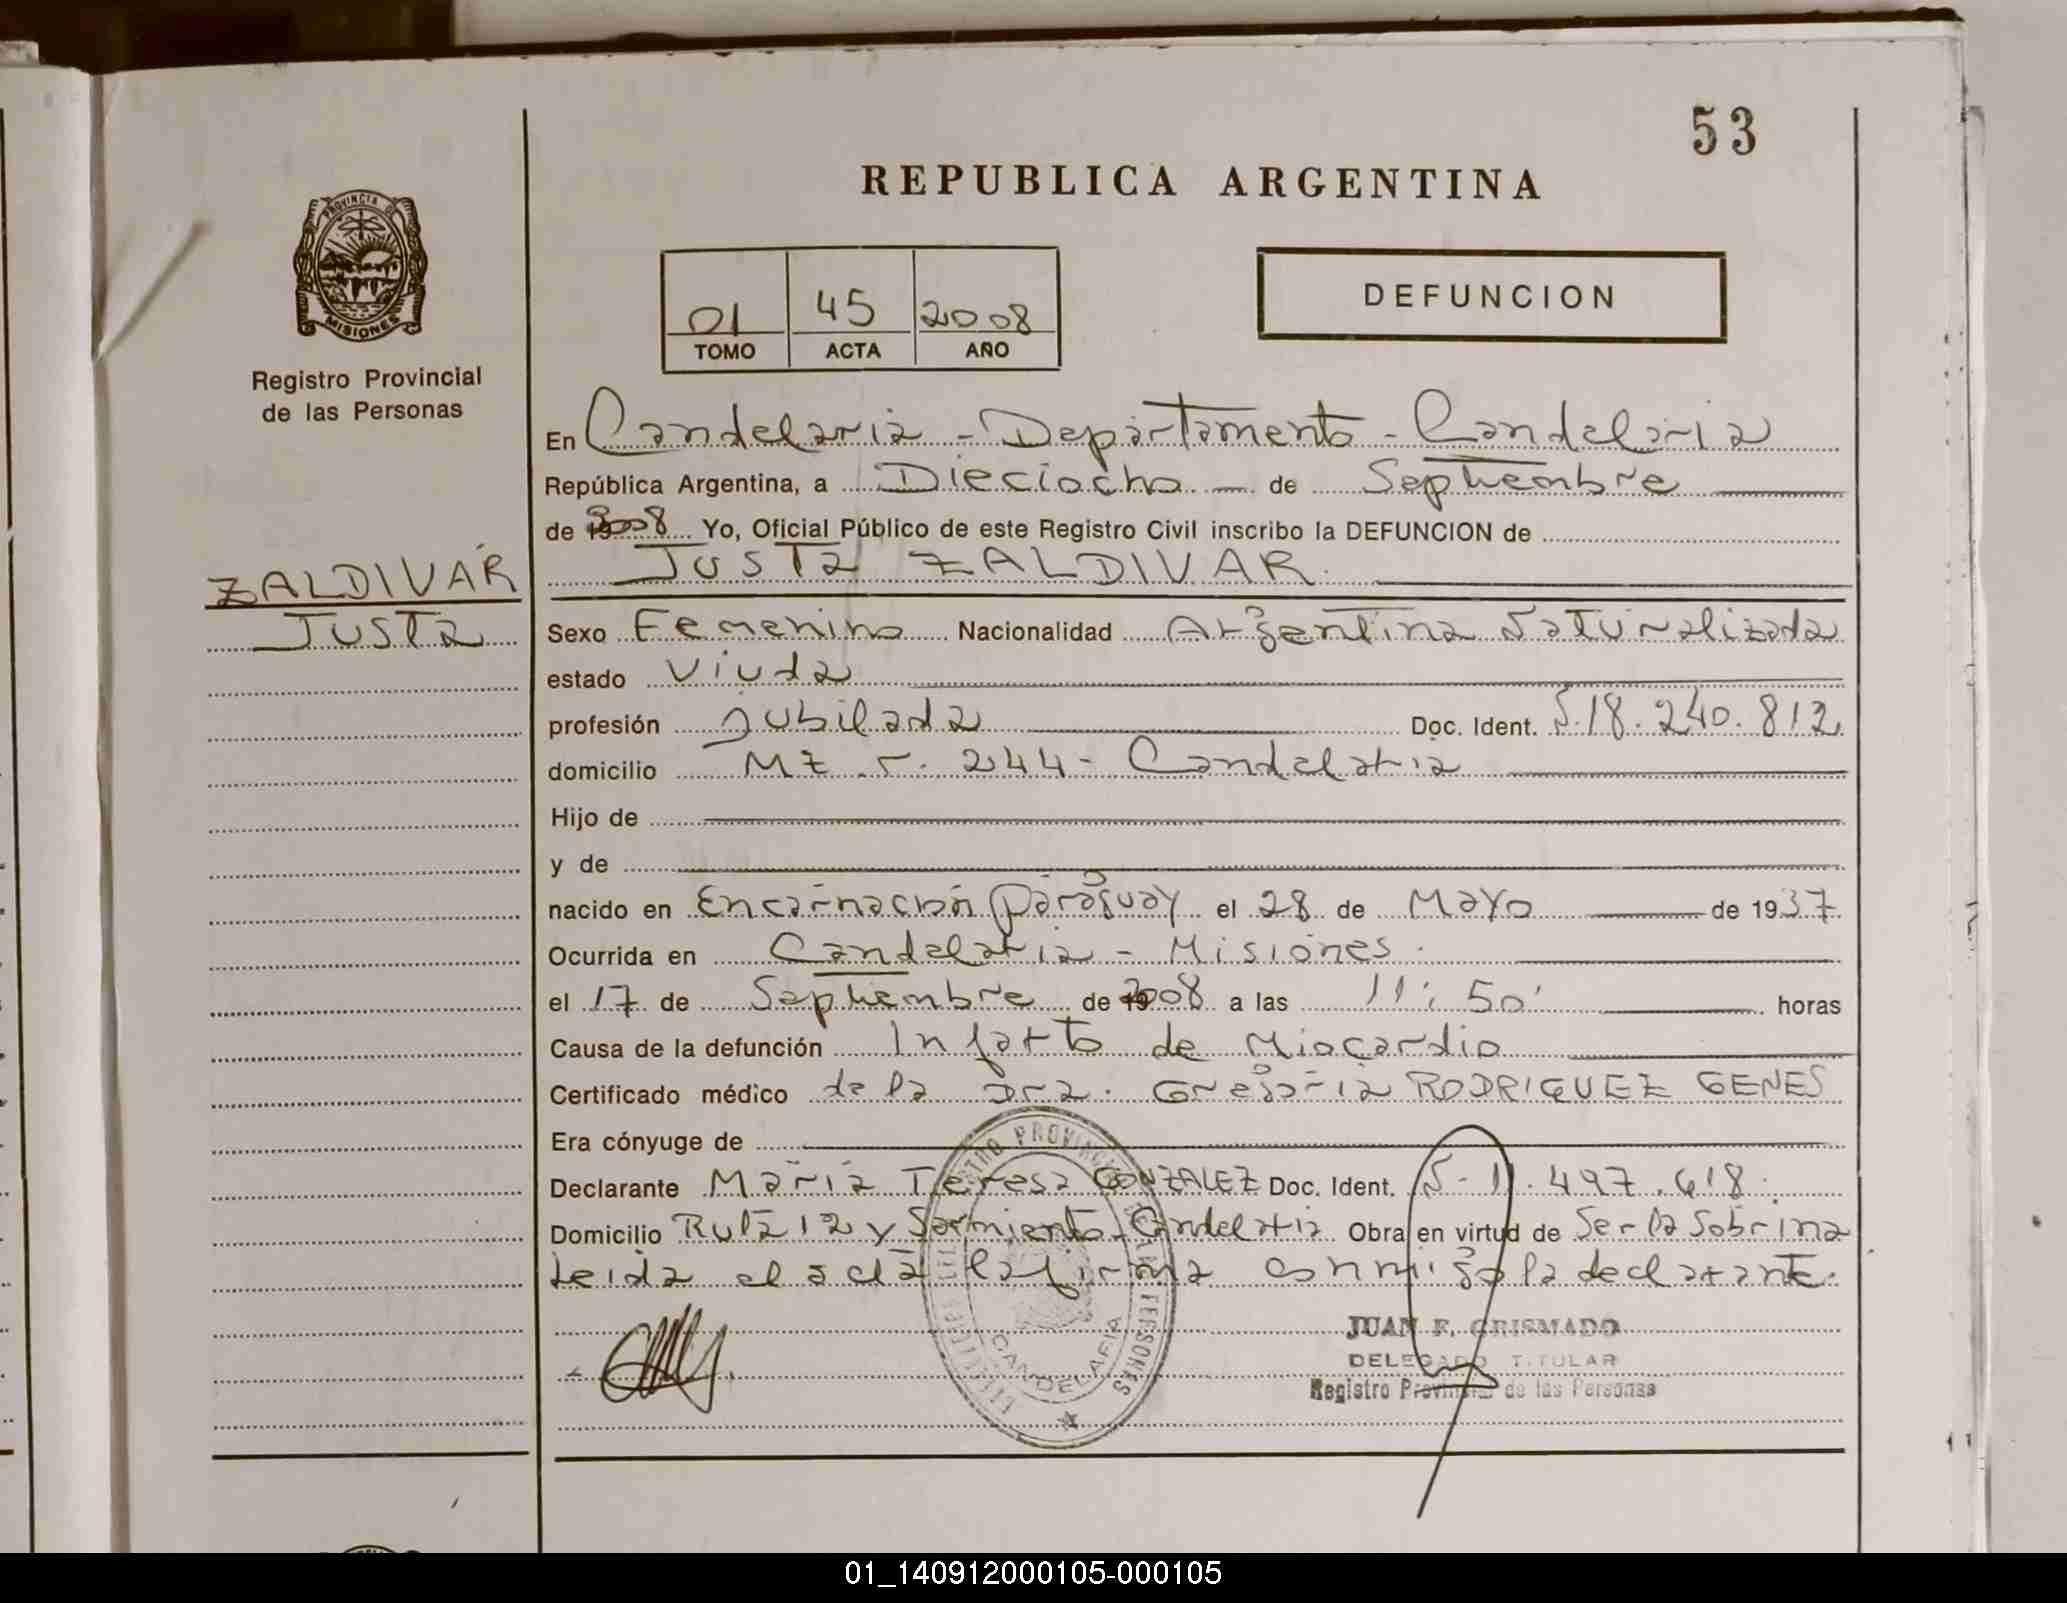 53
REPUBLICA ARGENTINA
PROVINCIA DE
MISIONES
Registro Provincial
de las Personas
01 45 2008
TOMO ACTA AÑO
DEFUNCION
En Candelaria - Departamento - Candelaria
República Argentina, a Dieciocho de Septiembre
de 2008 Yo, Oficial Público de este Registro Civil inscribo la DEFUNCION de
JUSTA ZALDIVAR.
ZALDIVAR
Justa
Sexo Femenino Nacionalidad Argentina Naturalizada
estado Viuda
profesión Jubilada Doc. Ident. N.18.240.812
domicilio Mz N. 244 - Candelaria
Hijo de
y de
nacido en Encarnación Paraguay el 28 de Mayo de 1937
Ocurrida en Candelaria - Misiones.
el 17 de Septiembre de 2008 a las 11:50' horas
Causa de la defunción Infarto de Miocardio
Certificado médico de la Dra. Gregoria RODRIGUEZ GENES
Era cónyuge de
Declarante María Teresa GONZALEZ Doc. Ident. N. 11.497.618
Domicilio Ruta 12 y Sarmiento - Candelaria Obra en virtud de Ser la Sobrina
Leida el acta la firma conmigo la declarante.
REGISTRO PROVINCIAL DE LAS PERSONAS
CANDELARIA
JUAN F. GRISMADO
DELEGADO TITULAR
Registro Provincial de las Personas
01_140912000105-000105